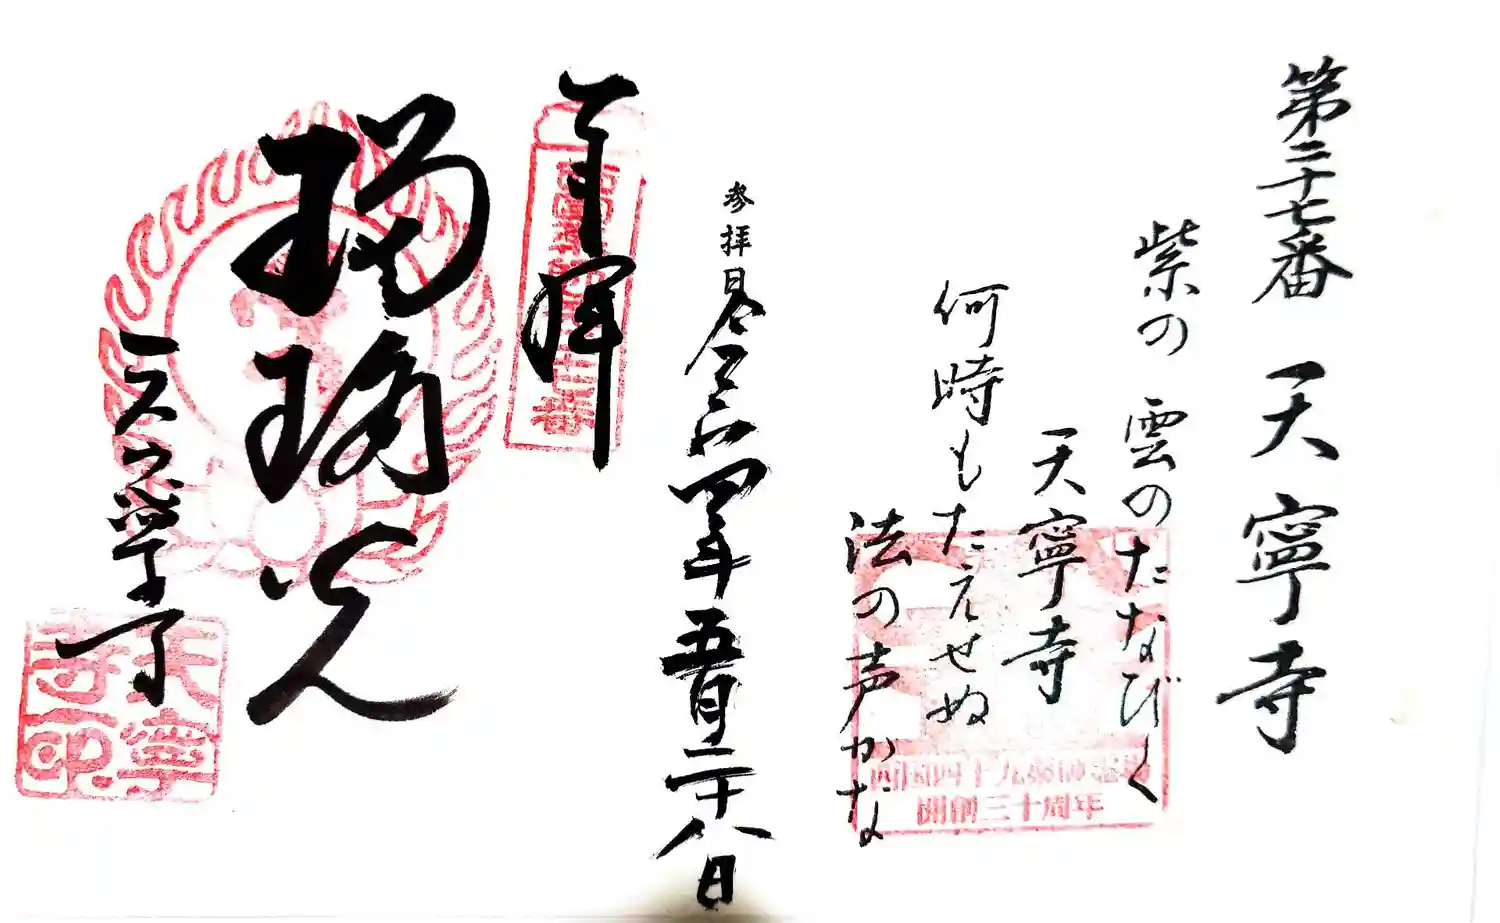 第二十七番 天寧寺
紫の雲のたなびく
天寧寺
何時もたえせぬ
法の声かな
四国四十九薬師霊場
開創三十周年
参拝日令和四年五月二十八日
奉拝
瑠璃光
天寧寺
天寧
寺印